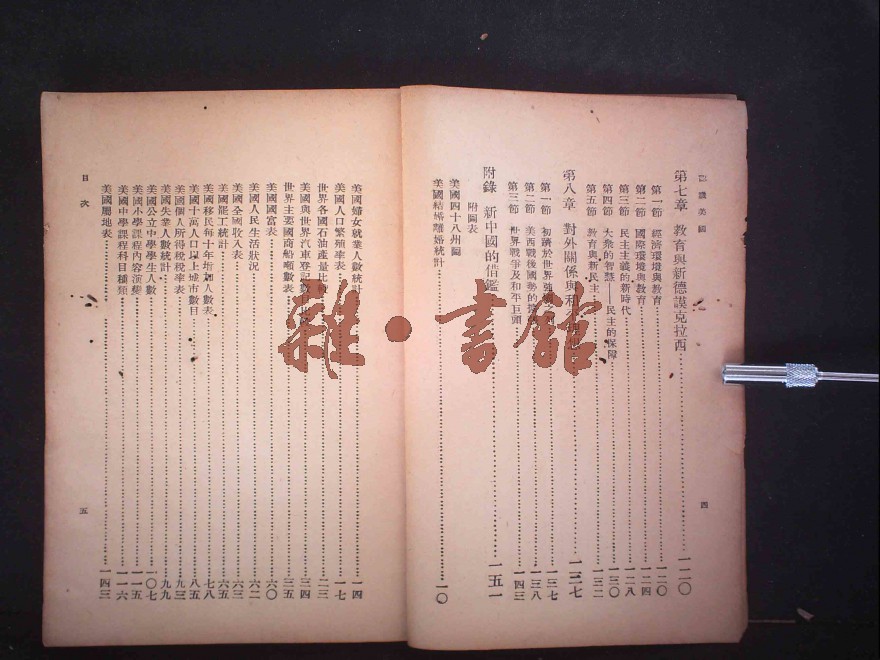 認識美國
第七章 教育與新德謨克拉西 一二〇
第一節 經濟環境與教育 一二〇
第二節 國際環境與教育 一二四
第三節 民主主義的新時代 一二八
第四節 大衆的智慧——民主的保障 一三〇
第五節 教育與新民主 一三二
第八章 對外關係與和 一三七
第一節 初躋於世界強 一三七
第二節 美西戰後國勢的 一三八
第三節 世界戰爭及和平巨頭 一四三
附錄 新中國的借鑑 一五一
附圖表
美國四十八州圖
美國結婚離婚統計 一〇
四
美國婦女就業人數統計 一四
美國人口繁殖率表 一七
世界各國石油產量比較 二三
美國與世界汽車登記數 三四
世界主要國商船噸數表 三五
美國國富表 六〇
美國人民生活狀況 六二
美國全國收入表 六三
美國罷工統計 六五
美國移民每十年增加人數表 七八
美國十萬人口以上城市數目 八五
美國個人所得稅稅率表 九三
美國失業人數統計 九九
美國公立中學學生人數 一〇七
美國小學課程內容演變 一一五
美國中學課程科目種類 一一六
美國屬地表 一四三
目次
五
雜·書館